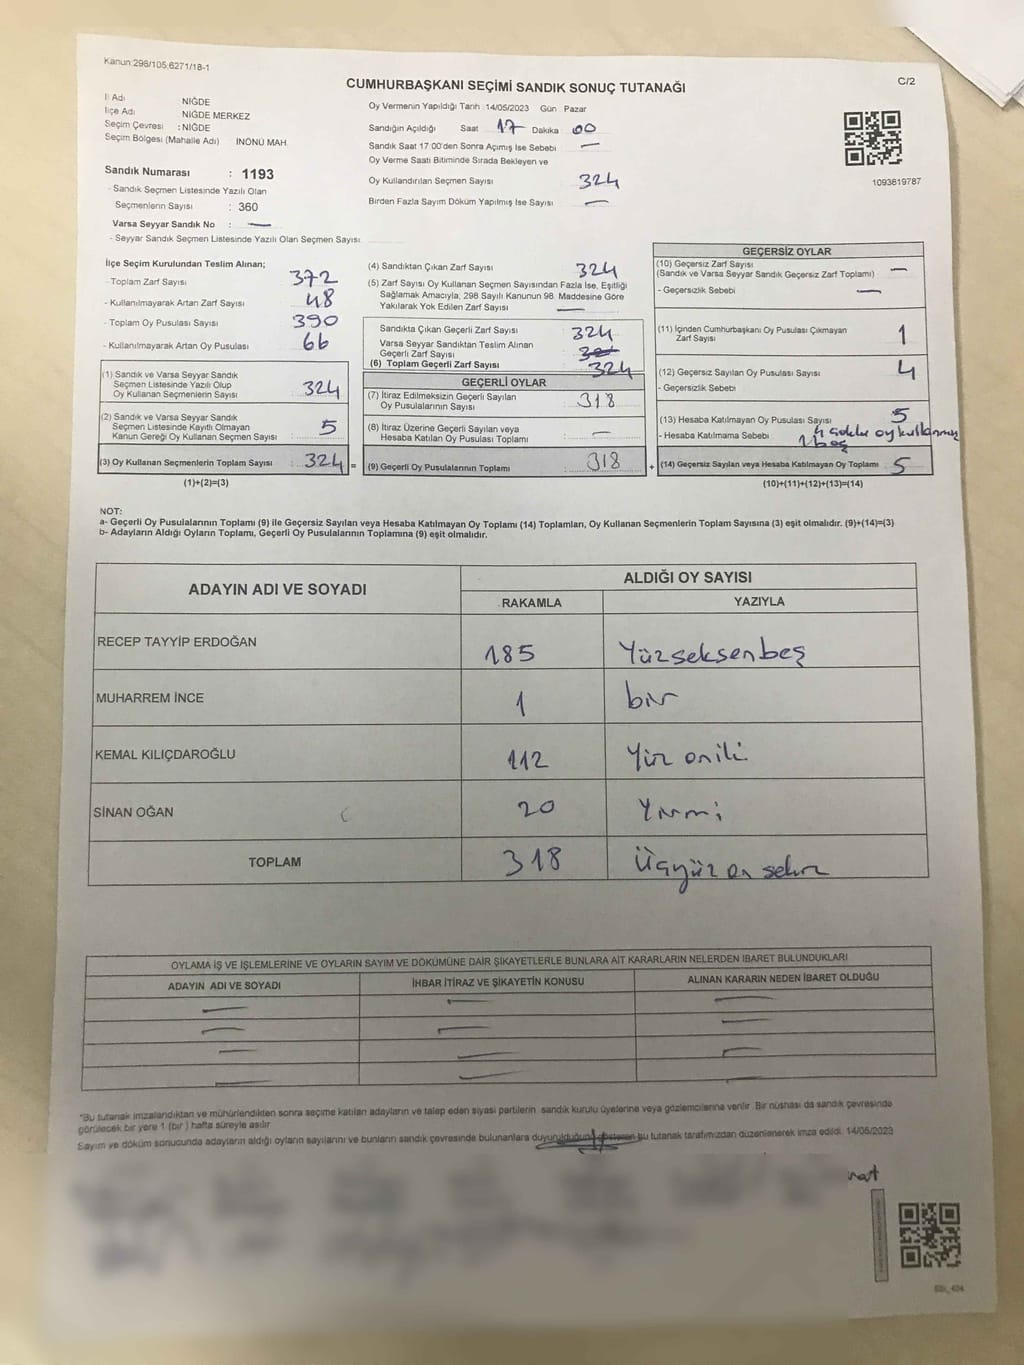 Kanun:298/105;6271/18-1
C/2
CUMHURBAŞKANI SEÇİMİ SANDIK SONUÇ TUTANAĞI
İl Adı NİĞDE
İlçe Adı NİĞDE MERKEZ
Seçim Çevresi : NİĞDE
Seçim Bölgesi (Mahalle Adı) İNÖNÜ MAH.
Sandık Numarası : 1193
- Sandık Seçmen Listesinde Yazılı Olan
Seçmenlerin Sayısı : 360
Varsa Seyyar Sandık No : —
- Seyyar Sandık Seçmen Listesinde Yazılı Olan Seçmen Sayısı
Oy Vermenin Yapıldığı Tarih :14/05/2023 Gün Pazar
Sandığın Açıldığı Saat 17 Dakika 00
Sandık Saat 17:00'den Sonra Açımış İse Sebebi —
Oy Verme Saati Bitiminde Sırada Bekleyen ve
Oy Kullandırılan Seçmen Sayısı 324
Birden Fazla Sayım Döküm Yapılmış İse Sayısı —
1093619787
İlçe Seçim Kurulundan Teslim Alınan;
- Toplam Zarf Sayısı 372
- Kullanılmayarak Artan Zarf Sayısı 48
- Toplam Oy Pusulası Sayısı 390
- Kullanılmayarak Artan Oy Pusulası 66
(1) Sandık ve Varsa Seyyar Sandık
Seçmen Listesinde Yazılı Olup
Oy Kullanan Seçmenlerin Sayısı : 324
(2) Sandık ve Varsa Seyyar Sandık
Seçmen Listesinde Kayıtlı Olmayan
Kanun Gereği Oy Kullanan Seçmen Sayısı : 5
(3) Oy Kullanan Seçmenlerin Toplam Sayısı : 324 =
(1)+(2)=(3)
(4) Sandıktan Çıkan Zarf Sayısı 324
(5) Zarf Sayısı Oy Kullanan Seçmen Sayısından Fazla İse, Eşitliği
Sağlamak Amacıyla, 298 Sayılı Kanunun 98. Maddesine Göre
Yakılarak Yok Edilen Zarf Sayısı —
Sandıkta Çıkan Geçerli Zarf Sayısı : 324
Varsa Seyyar Sandıktan Teslim Alınan
Geçerli Zarf Sayısı
(6) Toplam Geçerli Zarf Sayısı : 324
GEÇERLİ OYLAR
(7) İtiraz Edilmeksizin Geçerli Sayılan
Oy Pusulalarının Sayısı : 318
(8) İtiraz Üzerine Geçerli Sayılan veya
Hesaba Katılan Oy Pusulası Toplamı : —
(9) Geçerli Oy Pusulalarının Toplamı : 318 +
GEÇERSİZ OYLAR
(10) Geçersiz Zarf Sayısı
(Sandık ve Varsa Seyyar Sandık Geçersiz Zarf Toplamı) —
- Geçersizlik Sebebi —
(11) İçinden Cumhurbaşkanı Oy Pusulası Çıkmayan
Zarf Sayısı 1
(12) Geçersiz Sayılan Oy Pusulası Sayısı 4
- Geçersizlik Sebebi
(13) Hesaba Katılmayan Oy Pusulası Sayısı 5
- Hesaba Katılmama Sebebi 4 oy kullanmış
1 boş
(14) Geçersiz Sayılan veya Hesaba Katılmayan Oy Toplamı 5
(10)+(11)+(12)+(13)=(14)
NOT:
a- Geçerli Oy Pusulalarının Toplamı (9) ile Geçersiz Sayılan veya Hesaba Katılmayan Oy Toplamı (14) Toplamları, Oy Kullanan Seçmenlerin Toplam Sayısına (3) eşit olmalıdır. (9)+(14)=(3)
b- Adayların Aldığı Oyların Toplamı, Geçerli Oy Pusulalarının Toplamına (9) eşit olmalıdır.
ADAYIN ADI VE SOYADI
ALDIĞI OY SAYISI
RAKAMLA YAZIYLA
RECEP TAYYİP ERDOĞAN 185 Yüzseksenbeş
MUHARREM İNCE 1 bir
KEMAL KILIÇDAROĞLU 112 Yüz oniki
SİNAN OĞAN 20 Yirmi
TOPLAM 318 Üçyüz on sekiz
OYLAMA İŞ VE İŞLEMLERİNE VE OYLARIN SAYIM VE DÖKÜMÜNE DAİR ŞİKAYETLERLE BUNLARA AİT KARARLARIN NELERDEN İBARET BULUNDUKLARI
ADAYIN ADI VE SOYADI İHBAR İTİRAZ VE ŞİKAYETİN KONUSU ALINAN KARARIN NEDEN İBARET OLDUĞU
— — —
— — —
— — —
— — —
*Bu tutanak imzalandıktan ve mühürlendikten sonra seçime katılan adayların ve talep eden siyasi partilerin sandık kurulu üyelerine veya gözlemcilerine verilir. Bir nüshası da sandık çevresinde
görülecek bir yere 1 (bir ) hafta süreyle asılır
Sayım ve döküm sonucunda adayların aldığı oyların sayılarını ve bunların sandık çevresinde bulunanlara duyurulduğunu gösteren bu tutanak tarafımızdan düzenlenerek imza edildi. 14/05/2023